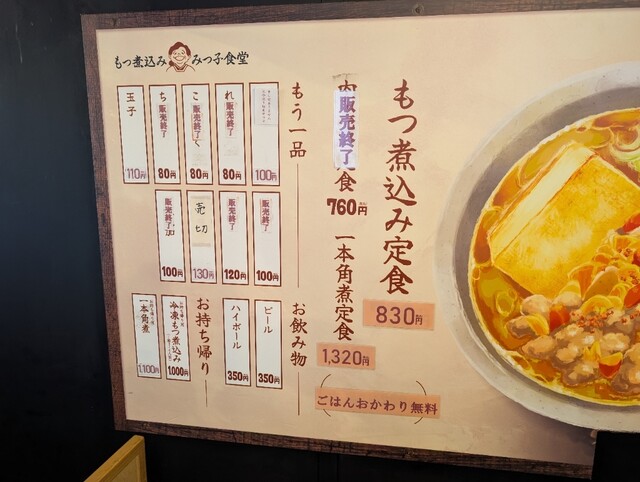 もつ煮込み みつ子食堂
もつ煮込み定食
830円
販売終了
食
760円
一本角煮定食
1,320円
ごはんおかわり無料
もう一品
100円
れ
販売終了
80円
こ
販売終了
80円
ち
販売終了
80円
玉子
110円
販売終了
100円
販売終了
120円
売切
130円
販売終了
100円
お飲み物
ビール
350円
ハイボール
350円
お持ち帰り
冷凍もつ煮込み
1,000円
一本角煮
1,100円